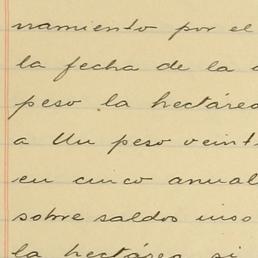 namiento por el
la fecha de la
peso la hectárea
a Un peso veint
en cinco anual
sobre saldos inso
la hectárea si